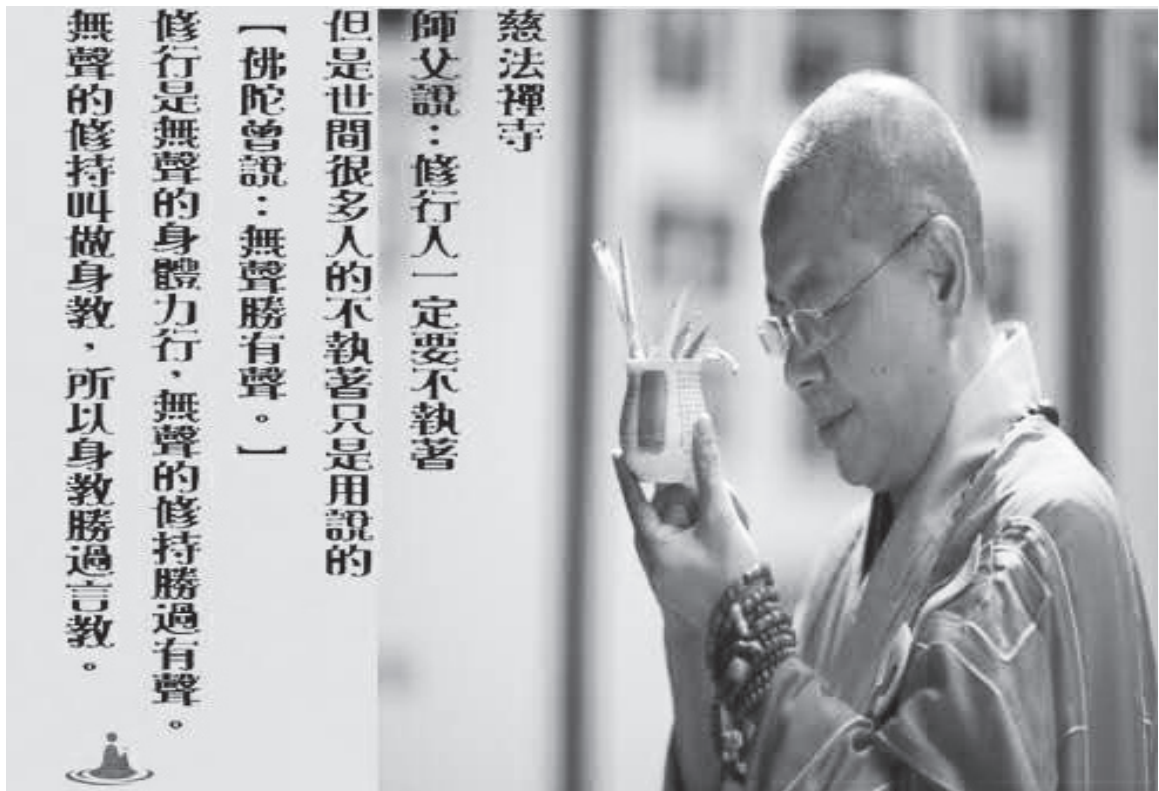 慈法禪寺
師父說：修行人一定要不執著
但是世間很多人的不執著只是用說的
【佛陀曾說：無聲勝有聲。】
修行是無聲的身體力行，無聲的修持勝過有聲。
無聲的修持叫做身教，所以身教勝過言教。